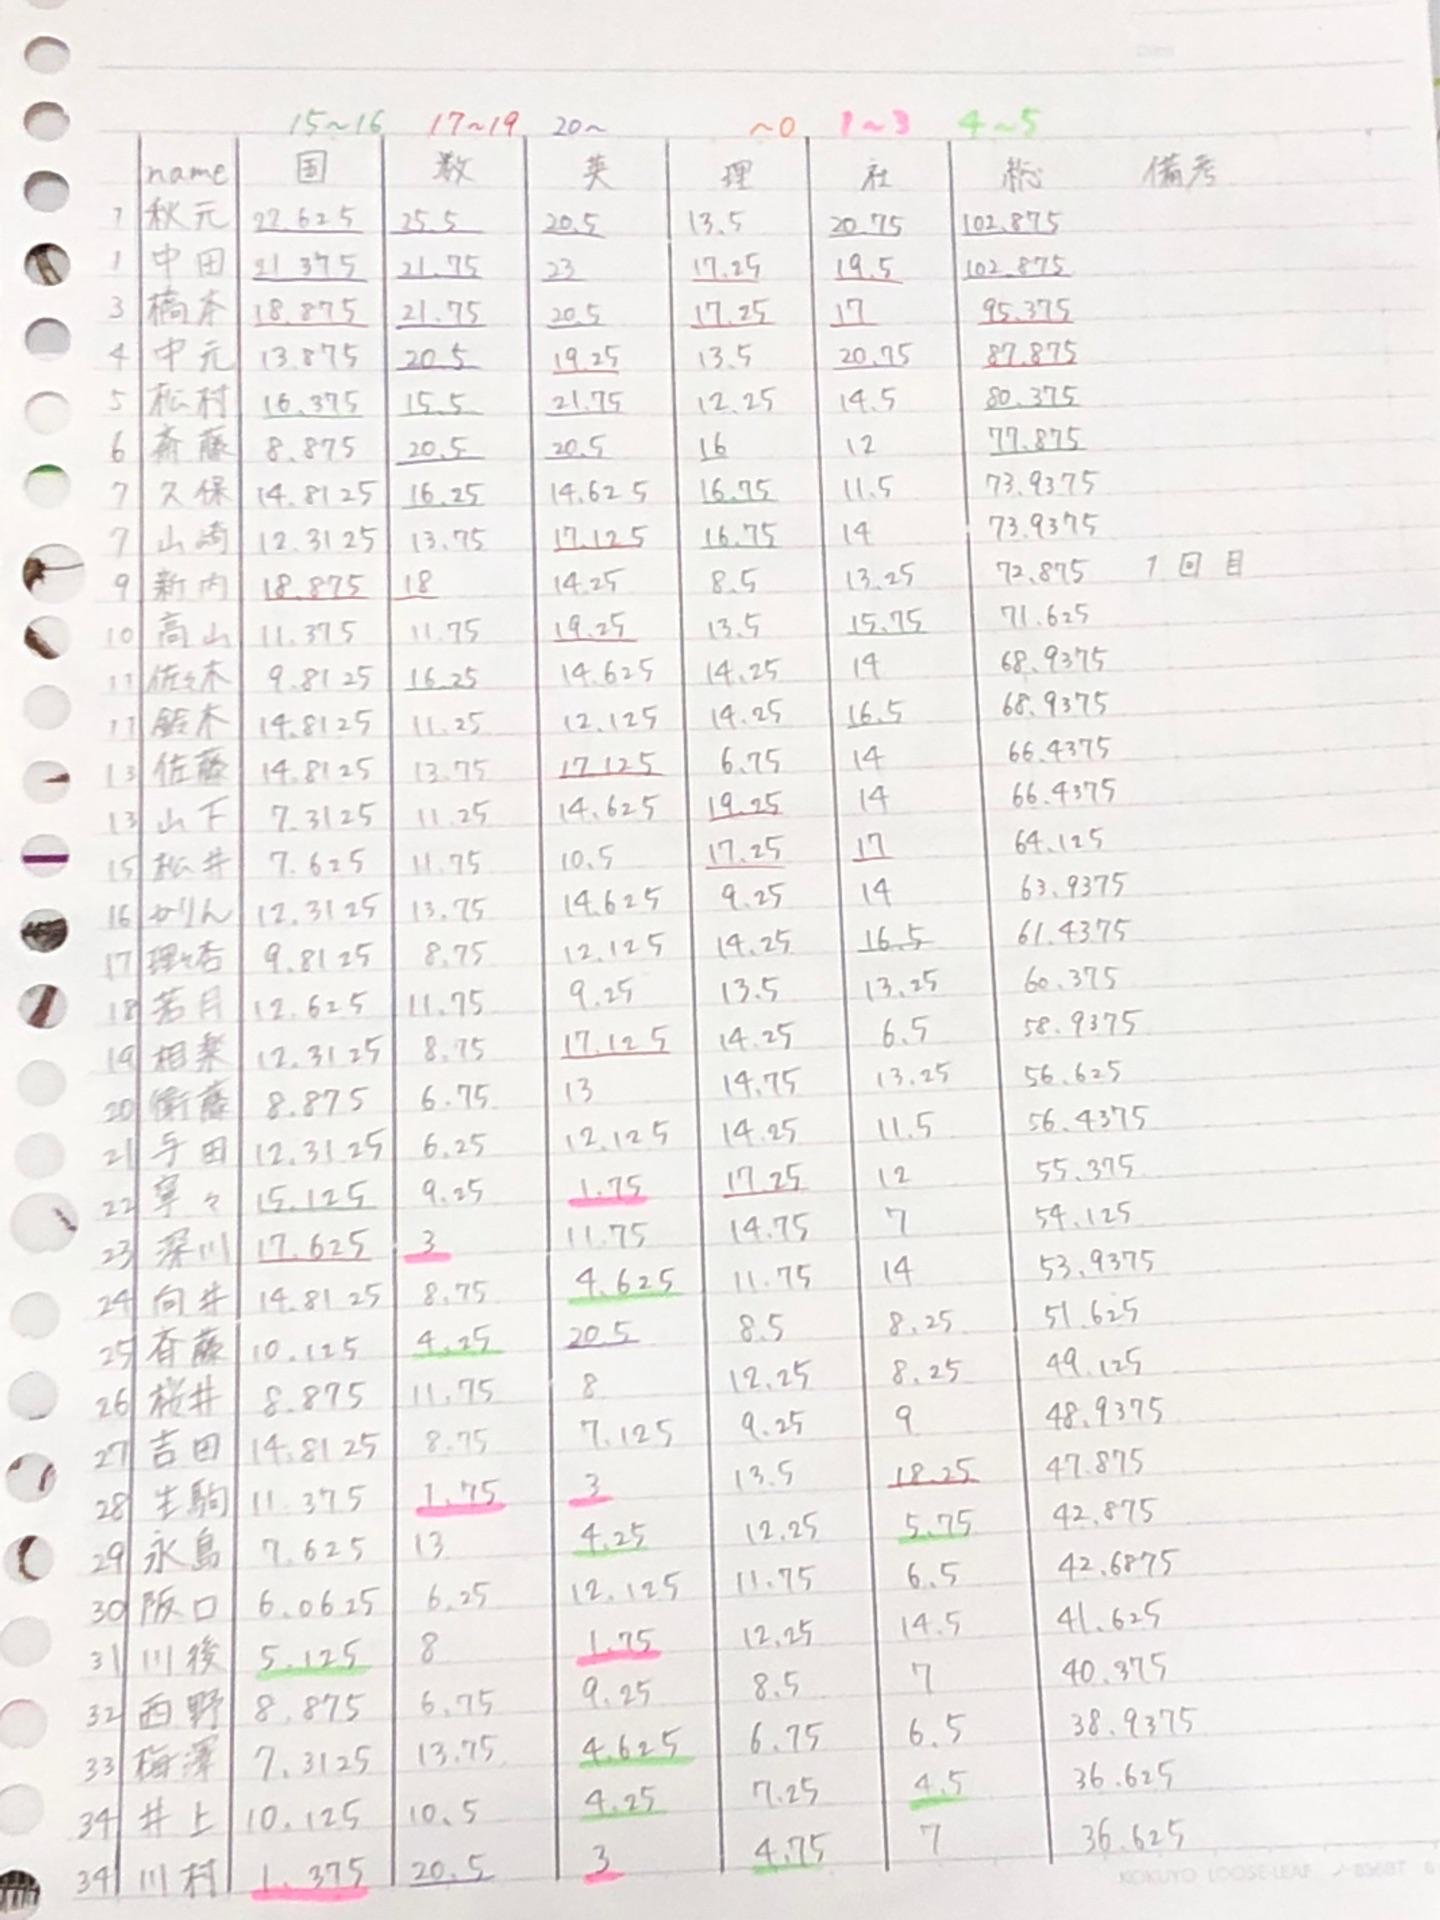 15~16 17~19 20~ ~0 1~3 4~5
name 国 数 英 理 社 総 備考
1 秋元 22.625 25.5 20.5 13.5 20.75 102.875
1 中田 21.375 21.75 23 17.25 19.5 102.875
3 橋本 18.875 21.75 20.5 17.25 17 95.375
4 中元 13.875 20.5 19.25 13.5 20.75 87.875
5 松村 16.375 15.5 21.75 12.25 14.5 80.375
6 斎藤 8.875 20.5 20.5 16 12 77.875
7 久保 14.8125 16.25 14.625 16.75 11.5 73.9375
7 山崎 12.3125 13.75 17.125 16.75 14 73.9375
9 新内 18.875 18 14.25 8.5 13.25 72.875 1回目
10 高山 11.375 11.75 19.25 13.5 15.75 71.625
11 佐々木 9.8125 16.25 14.625 14.25 14 68.9375
11 鈴木 14.8125 11.25 12.125 14.25 16.5 68.9375
13 佐藤 14.8125 13.75 17.125 6.75 14 66.4375
13 山下 7.3125 11.25 14.625 19.25 14 66.4375
15 松井 7.625 11.75 10.5 17.25 17 64.125
16 かりん 12.3125 13.75 14.625 9.25 14 63.9375
17 理々杏 9.8125 8.75 12.125 14.25 16.5 61.4375
18 若月 12.625 11.75 9.25 13.5 13.25 60.375
19 相楽 12.3125 8.75 17.125 14.25 6.5 58.9375
20 衛藤 8.875 6.75 13 14.75 13.25 56.625
21 与田 12.3125 6.25 12.125 14.25 11.5 56.4375
22 寧々 15.125 9.25 1.75 17.25 12 55.375
23 深川 17.625 3 11.75 14.75 7 54.125
24 向井 14.8125 8.75 4.625 11.75 14 53.9375
25 斉藤 10.125 4.25 20.5 8.5 8.25 51.625
26 桜井 8.875 11.75 8 12.25 8.25 49.125
27 吉田 14.8125 8.75 7.125 9.25 9 48.9375
28 生駒 11.375 1.75 3 13.5 18.25 47.875
29 永島 7.625 13 4.25 12.25 5.75 42.875
30 阪口 6.0625 6.25 12.125 11.75 6.5 42.6875
31 川後 5.125 8 1.75 12.25 14.5 41.625
32 西野 8.875 6.75 9.25 8.5 7 40.375
33 梅澤 7.3125 13.75 4.625 6.75 6.5 38.9375
34 井上 10.125 10.5 4.25 7.25 4.5 36.625
34 川村 1.375 20.5 3 4.75 7 36.625
KOKUYO LOOSE-LEAF